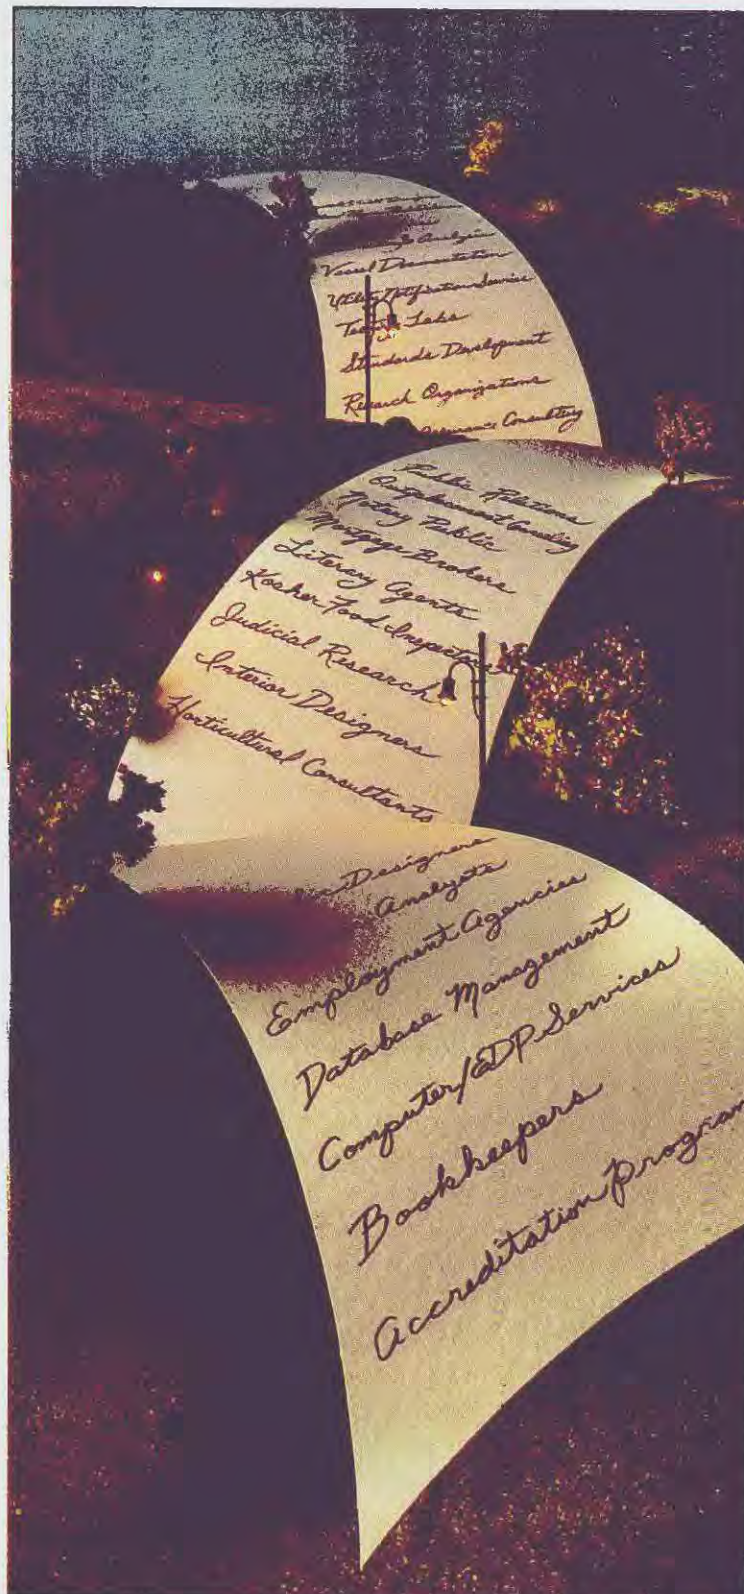 Analysis
Vessel Documentation
Utility Notification Service
Labs
Standards Development
Research Organizations
Consulting
Public Relations
Outplacement Counseling
Notary Public
Mortgage Brokers
Literary Agents
Kosher Food Inspectors
Judicial Research
Interior Designers
Horticultural Consultants
Designers
Analysts
Employment Agencies
Database Management
Computer/EDP Services
Bookkeepers
Accreditation Program